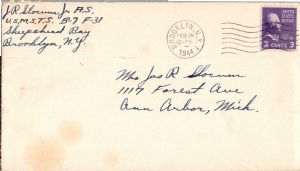 J.R. Slocum Jr. A.S.
U.S.M.S.T.S. B-9 F-31
Sheepshead Bay
Brooklyn, N.Y.
BROOKLYN, N.Y.
1944
3 CENTS 3
Mrs Jas R Slocum
1117 Forest Ave
Ann Arbor, Mich.